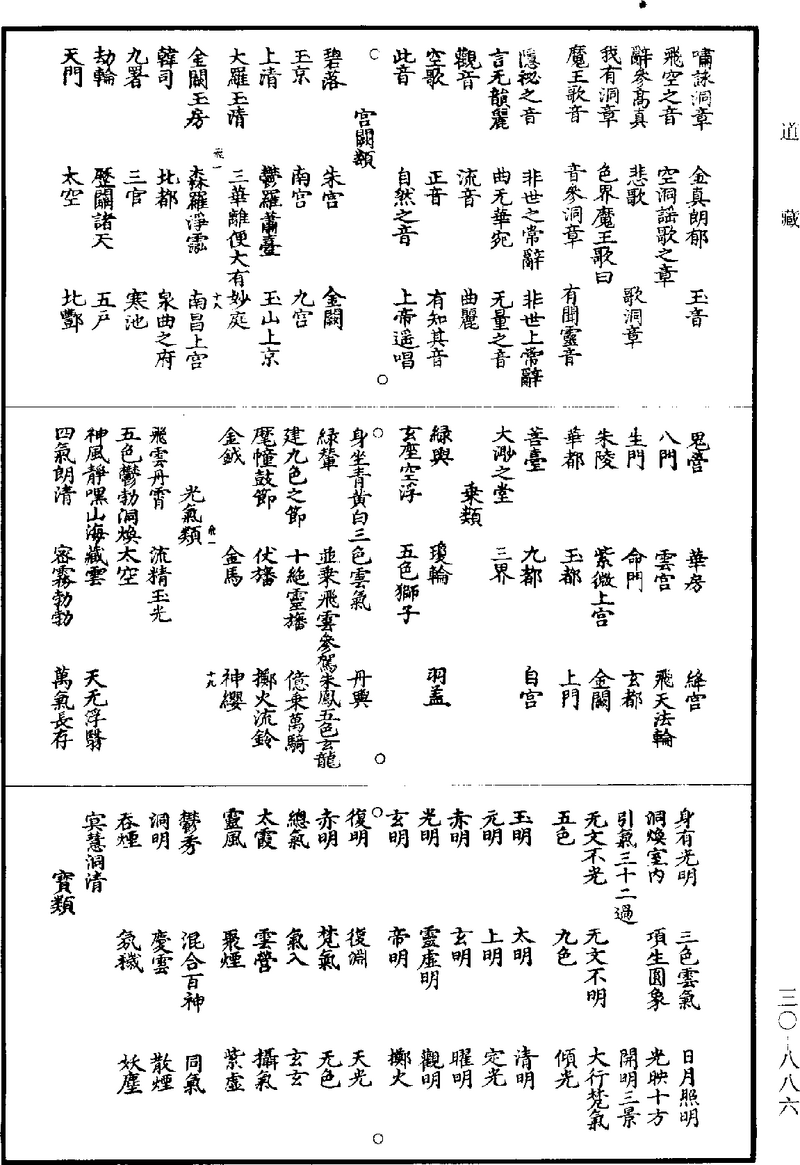 道藏
嘯詠洞章 金真朗郁 玉音
飛空之音 空洞謡歌之章
辭參髙真 悲歌 歌洞章
我有洞章 色界魔王歌曰
魔王歌音 音參洞章 有聞靈音
隱祕之音 非世之常辭 非世上常辭
言无韻麗 曲无華宛 无量之音
觀音 流音 曲麗
空歌 正音 有知其音
此音 自然之音 上帝遥唱
○ ○
宫闕類
碧落 朱宫 金闕
玉京 南宫 九宫
上清 鬱羅蕭臺 玉山上京
大羅玉清 三華離便大有妙庭
金闕玉房 森羅淨霐 南昌上宫
韓司 北都 泉曲之府
九署 三官 寒池
劫輪 歷關諸天 五戸
天門 太空 北酆
鬼營 華房 絳宫
八門 雲宫 飛天法輪
生門 命門 玄都
朱陵 紫微上宫 金闕
華都 玉都 上門
善臺 九都 自宫
大渺之堂 三界
乗類
緑輿 瓊輪 羽盖
玄座空浮 五色獅子
○ ○
身坐青黄白三色雲氣 丹輿
緑輦 並乗飛雲參駕朱鳳五色玄龍
建九色之節 十絶靈旛 億乗萬騎
麾幢鼓節 伏旛 擲火流鈴
金鉞 金馬 神纓
十九
光氣類
飛雲丹霄 流精玉光
五色鬱勃洞煥太空
神風靜嘿山海藏雲 天无浮翳
四氣朗清 宻霧勃勃 萬氣長存
身有光明 三色雲氣 日月照明
洞煥室内 項生圓象 光映十方
引氣三十二過 開明三景
无文不光 无文不明 大行梵氣
五色 九色 傾光
玉明 太明 清明
元明 上明 定光
赤明 玄明 曜明
光明 靈虚明 觀明
玄明 帝明 擲火
○ ○
復明 復淵 天光
赤明 梵氣 无色
總氣 氣入 玄玄
太霞 雲營 攝氣
靈風 聚煙 紫虚
鬱秀 混合百神 同氣
洞明 慶雲 散煙
吞煙 氛穢 妖塵
㝠慧洞清
寶類
三〇-八八六